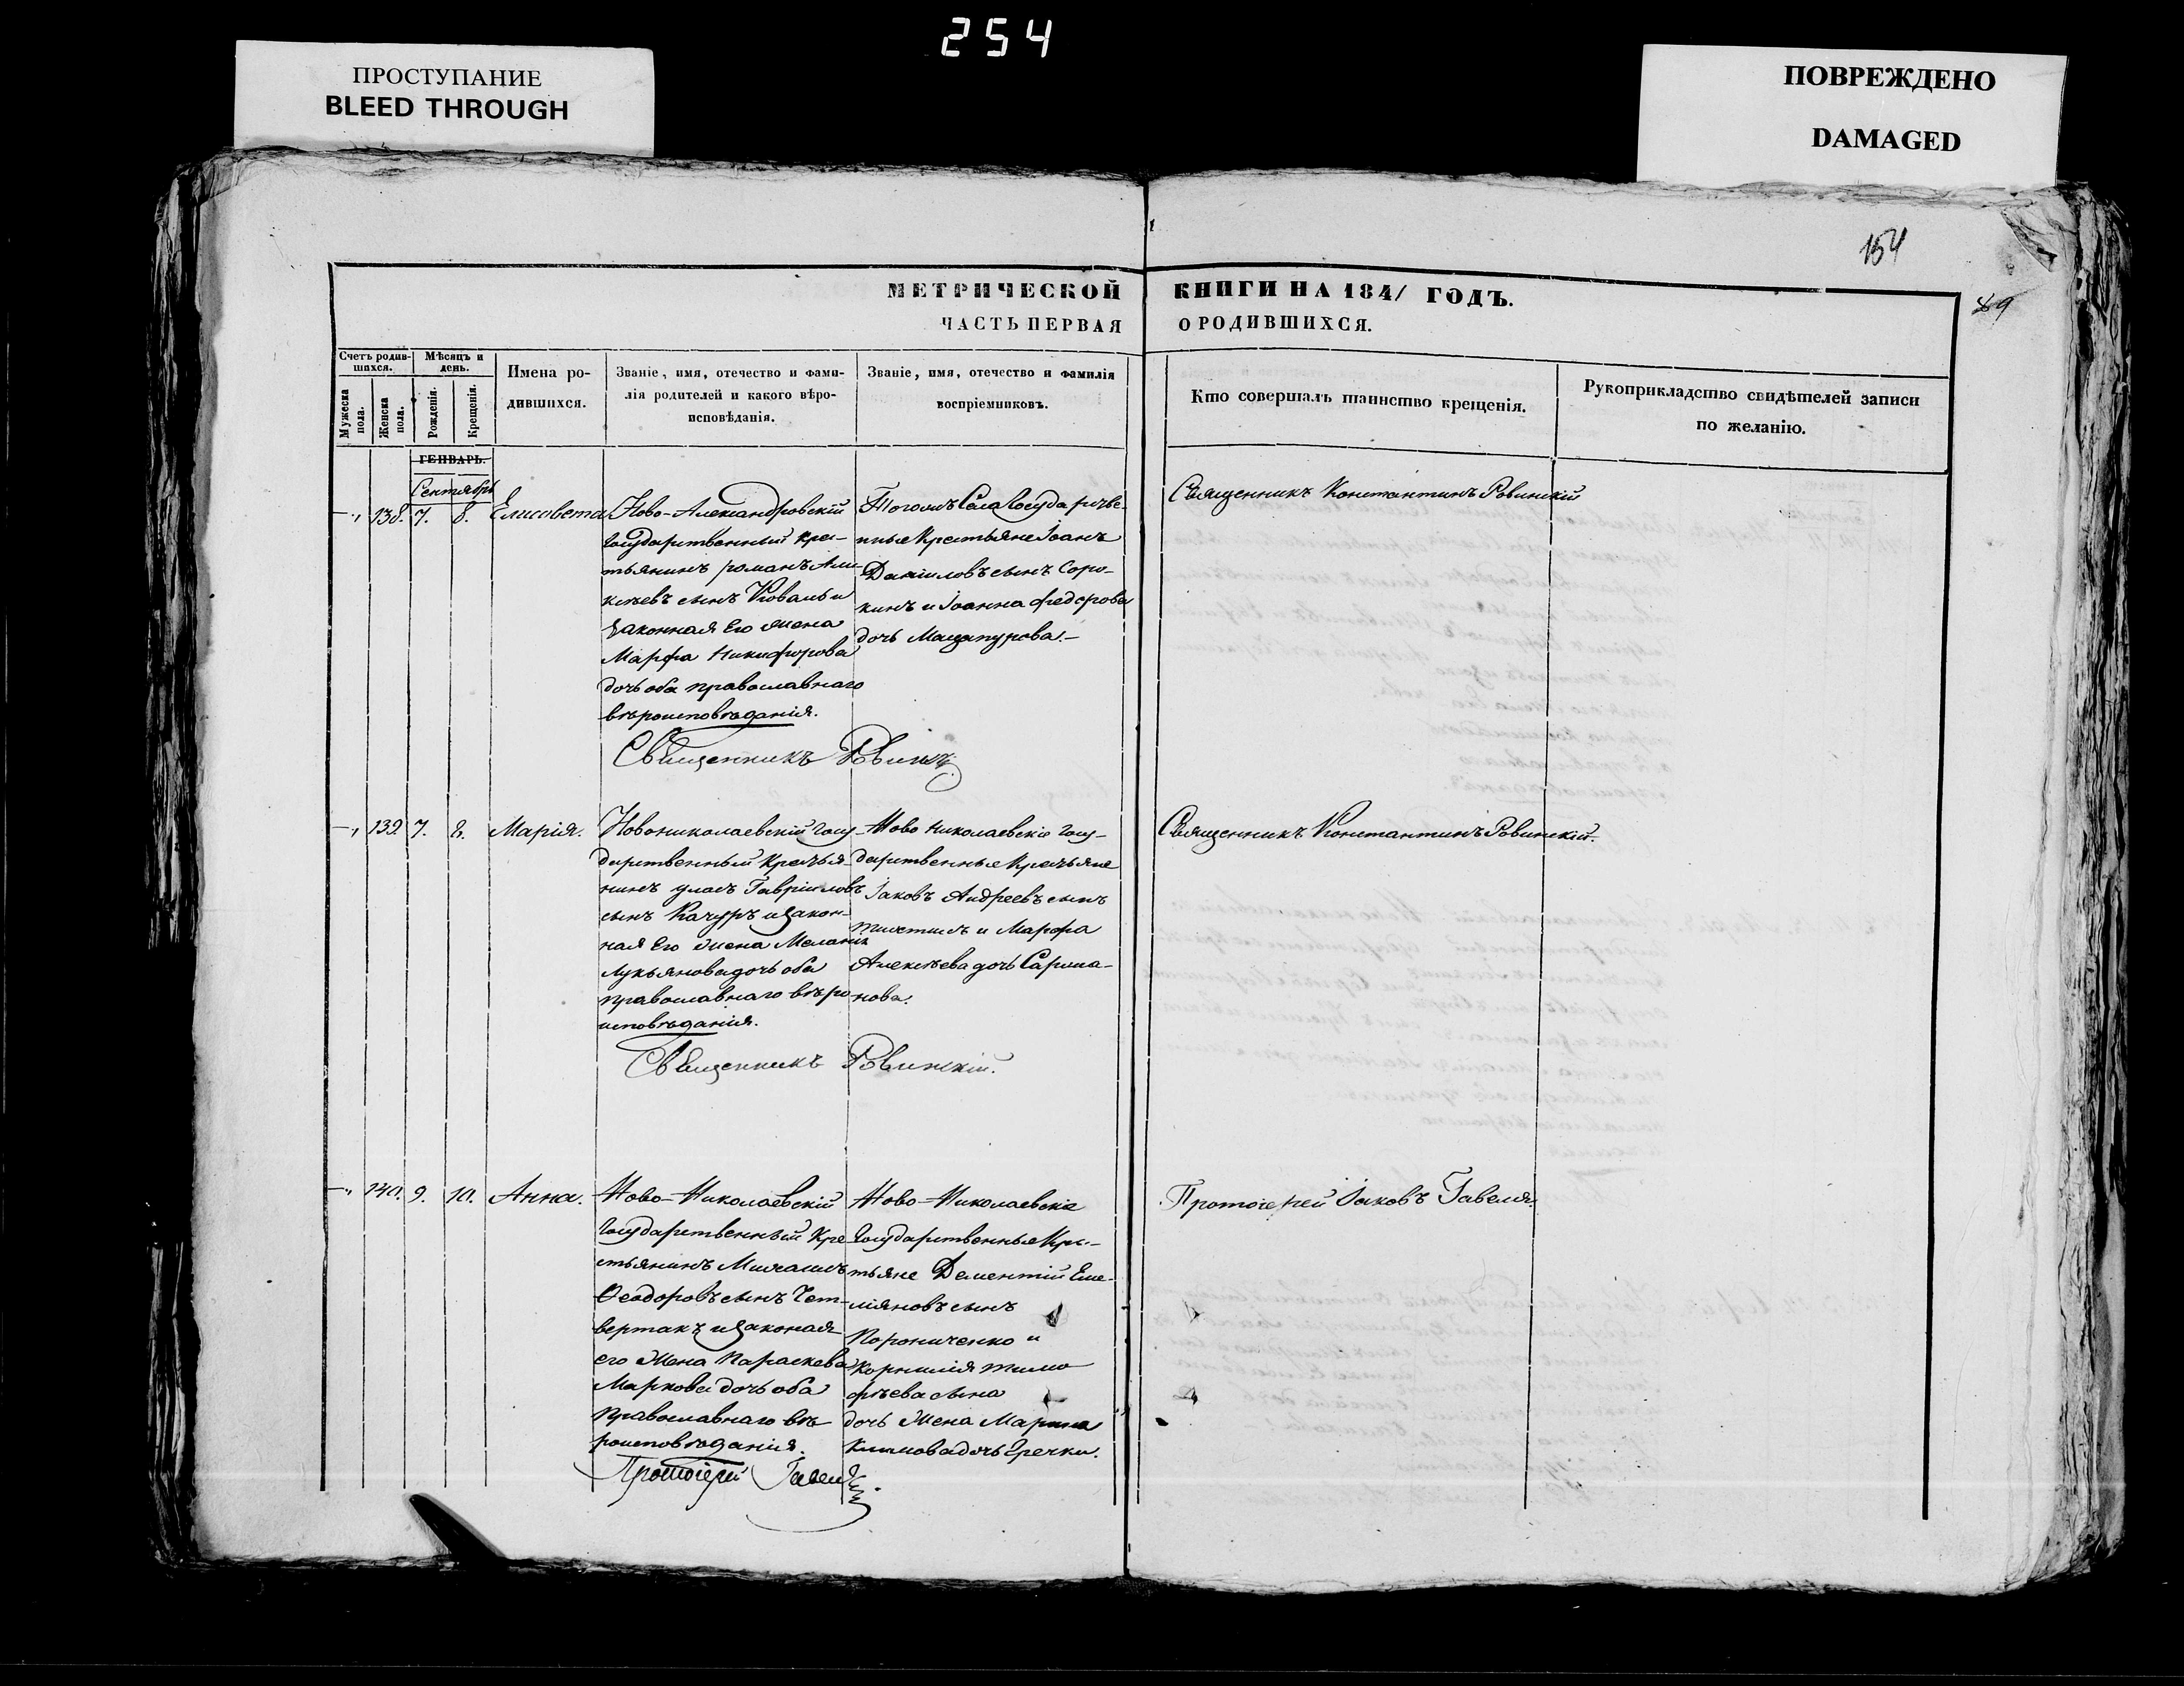 254
ПРОСТУПАНИЕ
BLEED THROUGH
ПОВРЕЖДЕНО
DAMAGED
154
89
МЕТРИЧЕСКОЙ КНИГИ НА 1841 ГОДЪ.
ЧАСТЬ ПЕРВАЯ О РОДИВШИХСЯ.
Счетъ родив-
шихся.
Мужеска
пола.
Женска
пола.
Мѣсяцъ и
день.
Рожденія.
Крещенія.
Имена ро-
дившихся.
Званіе, имя, отечество и фами-
лія родителей и какого вѣро-
исповѣданія.
Званіе, имя, отечество и фамилія
воспріемниковъ.
Кто совершалъ таинство крещенія.
Рукоприкладство свидѣтелей записи
по желанію.
ГЕНВАРЬ.
Сентябрь
138. 7. 8. Елисовета
Ново-Александровскій
государственный кре-
тьянинъ романъ Али-
кѣевъ сынъ Коваль и
законная Его жена
Марфа Никифорова
дочь оба православнаго
вѣроисповѣданія.
Тогожъ Села Государстве-
нные Крестьяне Іоанъ
Даниловъ сынъ Соро-
кинъ и Іоанна федорова
дочь Мацапурова.-
Священникъ Константинъ Ровинскій
Священникъ
139 7. 8. Марія.
Новониколаевскій госу-
дарственный Крестья-
нинъ уласъ Гавріиловъ
сынъ Качуръ и закон-
ная Его жена Меланія
Лукьянова дочь оба
православнаго вѣро
исповѣданія.
Ново Николаевскіе госу-
дарственные Крестьяне
Іаковъ Андреевъ сынъ
и Марфа
Алексѣева дочь
нова.
Священникъ Константинъ Ровинскій.
Священникъ Ровинскій.
140. 9. 10. Анна.
Ново-Николаевскій
Государственный Кре
стьянинъ Михаилъ
Ѳеодоровъ сынъ Чет-
вертакъ и законая
его жена Параскева
Маркова дочь оба
Православнаго вѣ-
роисповѣданія.
Ново-Николаевскіе
Государственные Кре-
тьяне Дементій Еме-
ліяновъ сынъ
Порониченко и
Корнилія тимо
фѣева сына
дочь жена Марина
Климова дочь Гречки.
Протоіерей Іаковъ Гавеля.
Протоіерей